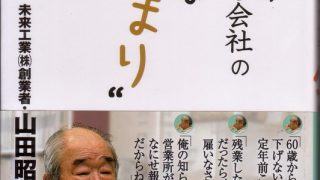 会社の
まり“
60歳から
下げない
定年前
残業した
だったら
雇いなさ
俺の知ら
営業所が
なにせ報
だからね
未来工業㈱創業者・山田昭